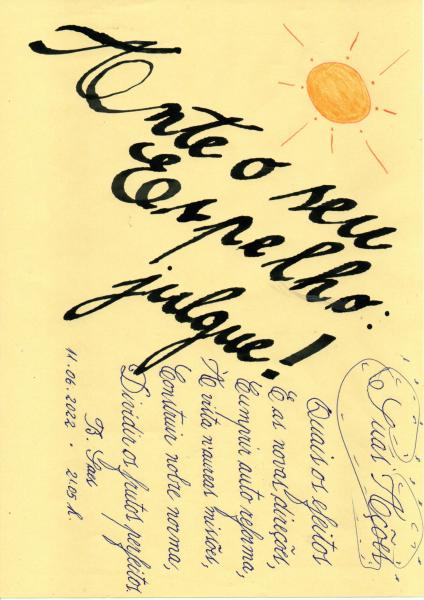 Ante o seu
Espelho:
julgue!
Suas Ações
Quais os efeitos
E as novas direções,
Cumprir auto reforma,
missões,
Construir nobre norma,
Dividir os frutos perfeitos.
11.06.2022. 21:05 h.